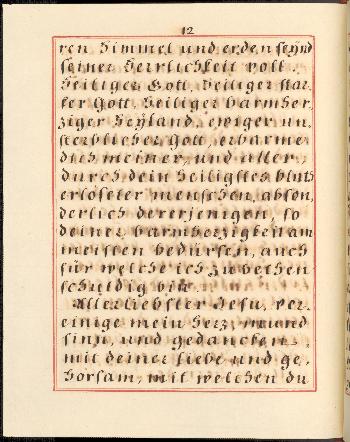 12
ren Himmel und erden seynd
seiner Herrlichkeit voll.
Heiliger Gott, Heiliger star-
ker Gott, Heiliger barmher
ziger Heyland, ewiger un,
sterblicher Gott, erbarme
dich meiner, und aller,
durch dein Heiligstes bluth
erlöseter menschen, abson,
derlich dererjenigen, so
deiner barmherzigkeit am
meisten bedürfen, auch
für welche ich zu bethen
schuldig bin.
Allerliebster Jesu, ver-
einige mein Herz, mund
sinn, und gedancken,
mit deiner liebe und ge,
horsam, mit welchen du